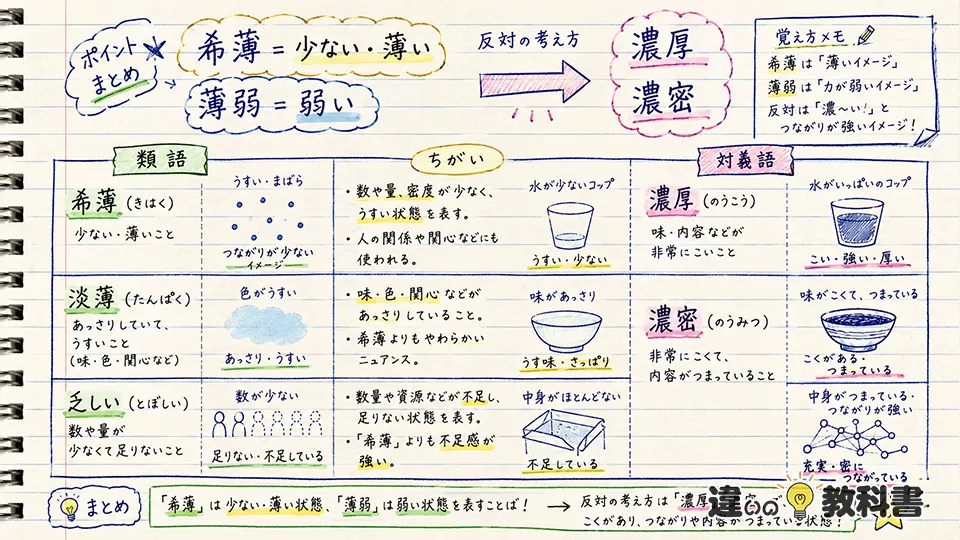 ポイント
まとめ
希薄 = 少ない・薄い
薄弱 = 弱い
反対の考え方
濃厚
濃密
覚え方メモ
希薄は「薄いイメージ」
薄弱は「力が弱いイメージ」
反対は「濃〜い!」と
つながりが強いイメージ!
類語
ちがい
対義語
希薄(きはく)
少ない・薄いこと
うすい・まばら
つながりが少ない
イメージ
・数や量、密度が少なく、
うすい状態を表す。
・人の関係や関心などにも
使われる。
水が少ないコップ
うすい・少ない
濃厚(のうこう)
味・内容などが
非常にこいこと
水がいっぱいのコップ
こい・強い・厚い
淡薄(たんぱく)
あっさりしていて、
うすいこと
(味・色・関心など)
色がうすい
あっさり・うすい
・味・色・関心などが
あっさりしていること。
・希薄よりもやわらかい
ニュアンス。
味があっさり
うす味・さっぱり
濃密(のうみつ)
非常にこくて、
内容がつまっていること
味がこくて、つまっている
こくがある・
つまっている
乏しい(とぼしい)
数や量が
少なくて足りないこと
数が少ない
足りない・不足している
・数量や資源などが不足し、
足りない状態を表す。
・「希薄」よりも不足感が
強い。
中身がほとんどない
不足している
中身がつまっている・
つながりが強い
充実・密に
つながっている
まとめ
「希薄」は少ない・薄い状態、「薄弱」は弱い状態を表すことば!
→ 反対の考え方は「濃厚
こくがあり、つながりや内容がつまっている状態!
違いの教科書